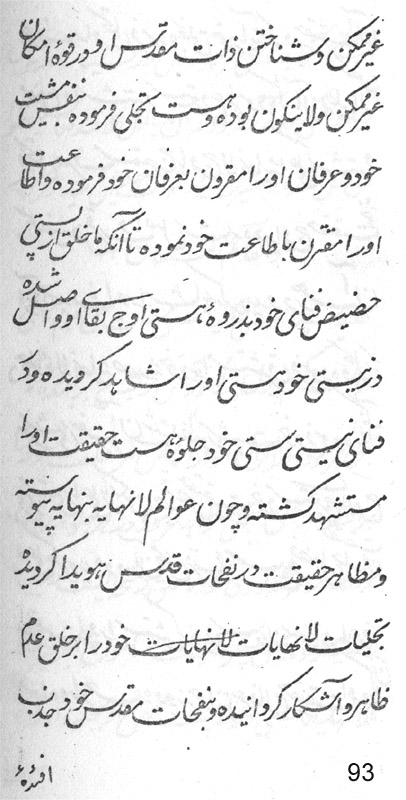 غیر ممکن و شناختن ذات مقدس او در قوهٔ امکان
غیر ممکن ولا یتکون بوده و هست تجلی فرموده بنفس مشیت
خود و عرفان او را مقرون بعرفان خود فرموده و اطاعت
او را مقترن باطاعت خود نموده تا آنکه ما خلق از پستی
حضیض فنای خود بذروهٔ هستی اوج بقای او واصل شده
در نیستی خود هستی او را شاهد گردیده و در
فنای نیستی هستی خود جلوهٔ هست حقیقت او را
مستشهد گشته و چون عوالم لانهایه بنهایه پیوسته
و مظاهر حقیقت در نفحات قدس هویدا گردیده
تجلیات لانهایات خود را بر خلق عدم
ظاهر و آشکار گردانیده و بنفحات مقدس خود جذب
افئدهٔ
93